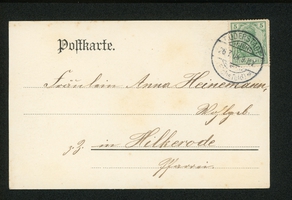 Postkarte.
5 5
Fräulein Anna Heinemann,
Wohlgeb.
z. Z. in Hilkerode